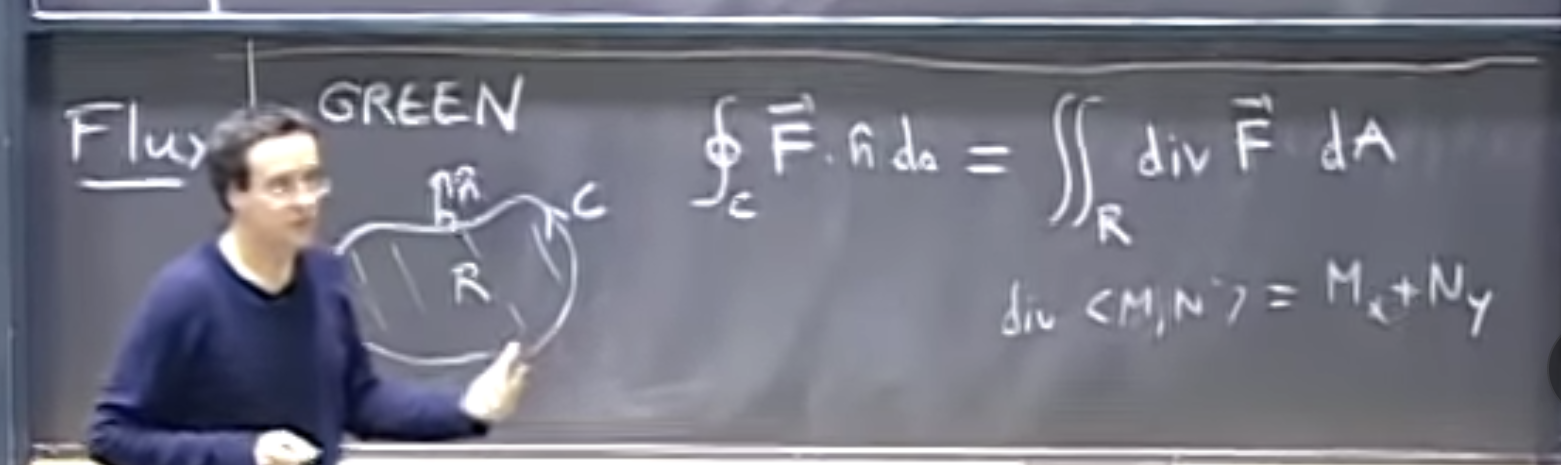 Flux GREEN
∮_C F⃗ · n̂ ds = ∬_R div F⃗ dA
n̂ C
R
div <M,N> = Mₓ+N_y